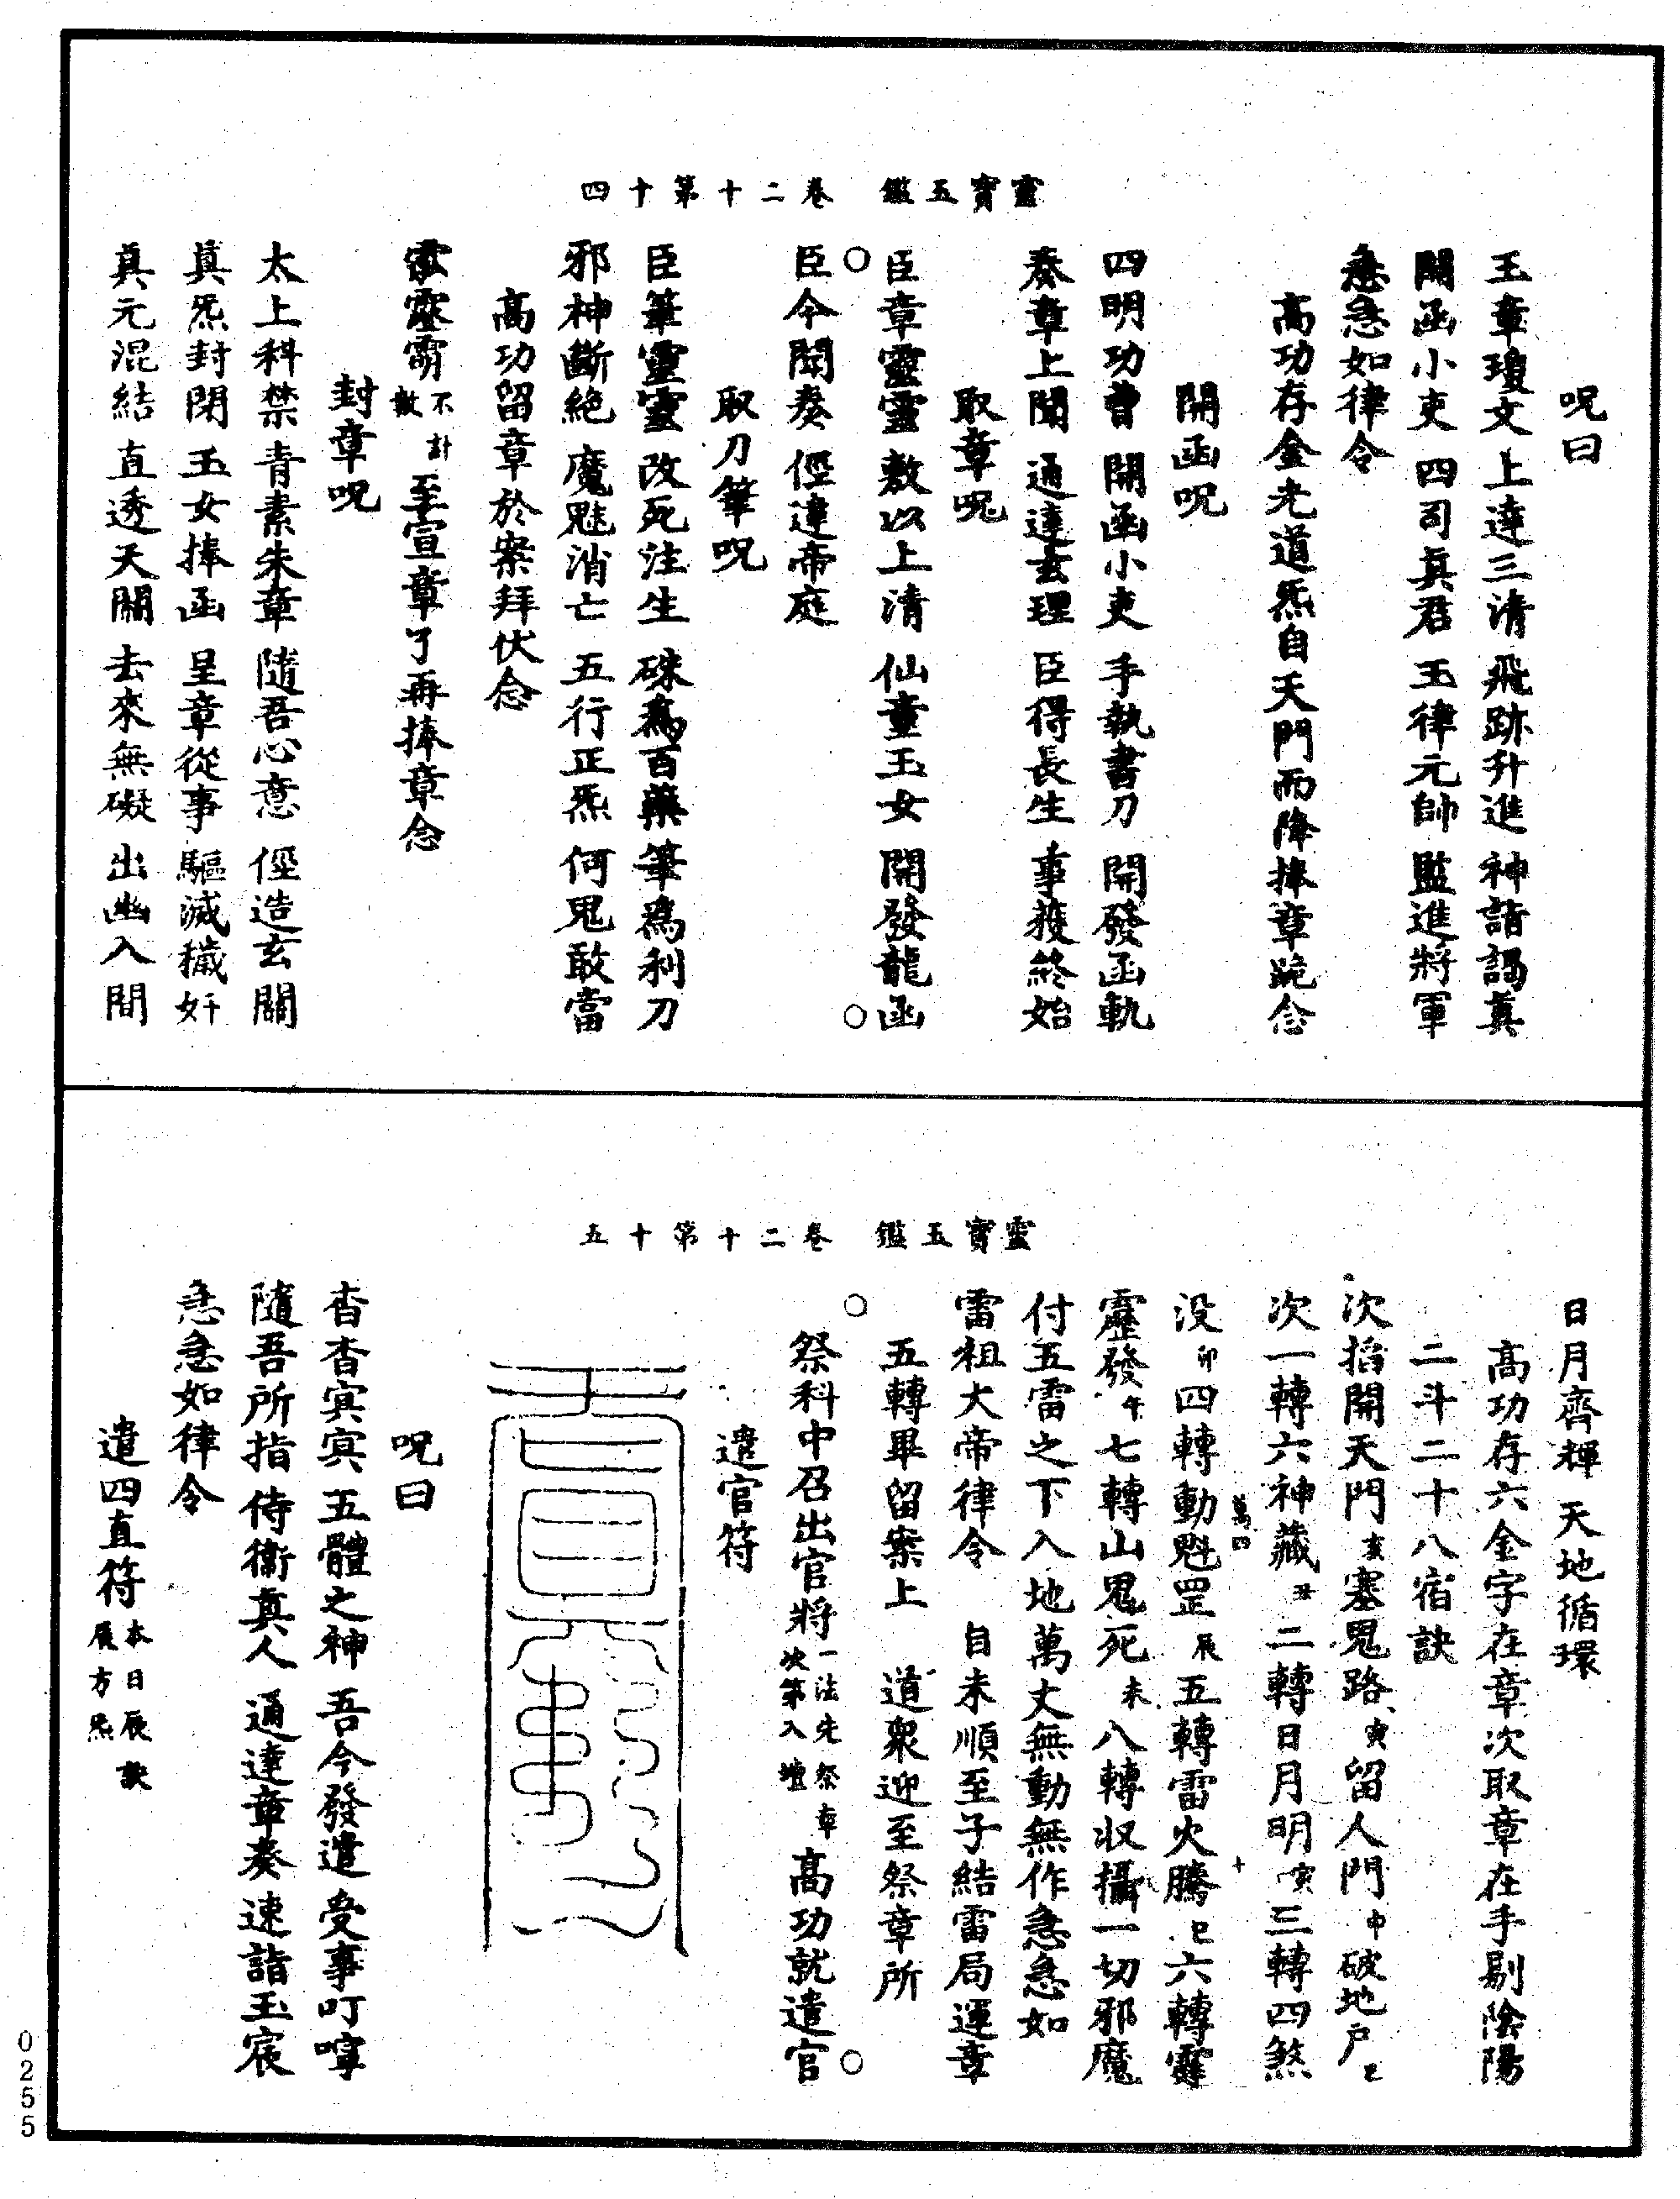 靈寶玉鑑　卷二十第十四
呪曰
玉章瓊文　上達三清　飛跡升進　神詣謁真
開函小吏　四司真君　玉律元帥　監進將軍
急急如律令
高功存金光道炁自天門而降捧章跪念
開函呪
四明功曹　開函小吏　手執書刀　開發函軌
奏章上聞　通達玄理　臣得長生　事蒙終始
取章呪
臣章靈靈　敷以上清　仙童玉女　開發龍函
臣今聞奏　徑達帝庭
取刀筆呪
臣筆靈靈　改死注生　硃為百藥　筆為利刀
邪神斷絕　魔魅消亡　五行正炁　何鬼敢當
高功留章於案拜伏念
不計數　至宣章了再捧章念
封章呪
太上科禁　青素朱章　隨吾心意　徑造玄關
真炁封閉　玉女捧函　呈章從事　驅滅穢奸
真元混結　直透天關　去來無礙　出幽入間
靈寶玉鑑　卷二十第十五
日月齊輝　天地循環
高功存六金字在章次取章在手剔陰陽
二斗二十八宿訣
次掐開天門亥塞鬼路寅留人門申破地戶巳
次一轉六神藏丑二轉日月明寅三轉四煞
萬四　十
没卯四轉動魁罡辰五轉雷火騰巳六轉霹
靂發午七轉山鬼死未八轉收攝一切邪魔
付五雷之下入地萬丈無動無作急急如
雷祖大帝律令　自未順至子結雷局運章
五轉畢留案上　道眾迎至祭章所
祭科中召出官將一法先祭章次第入壇高功就遣官
遣官符
呪曰
杳杳冥冥　五體之神　吾今發遣　受事叮嚀
隨吾所指　侍衛真人　通達章奏　速詣玉宸
急急如律令
遣四直符本日辰訣辰方炁
0255